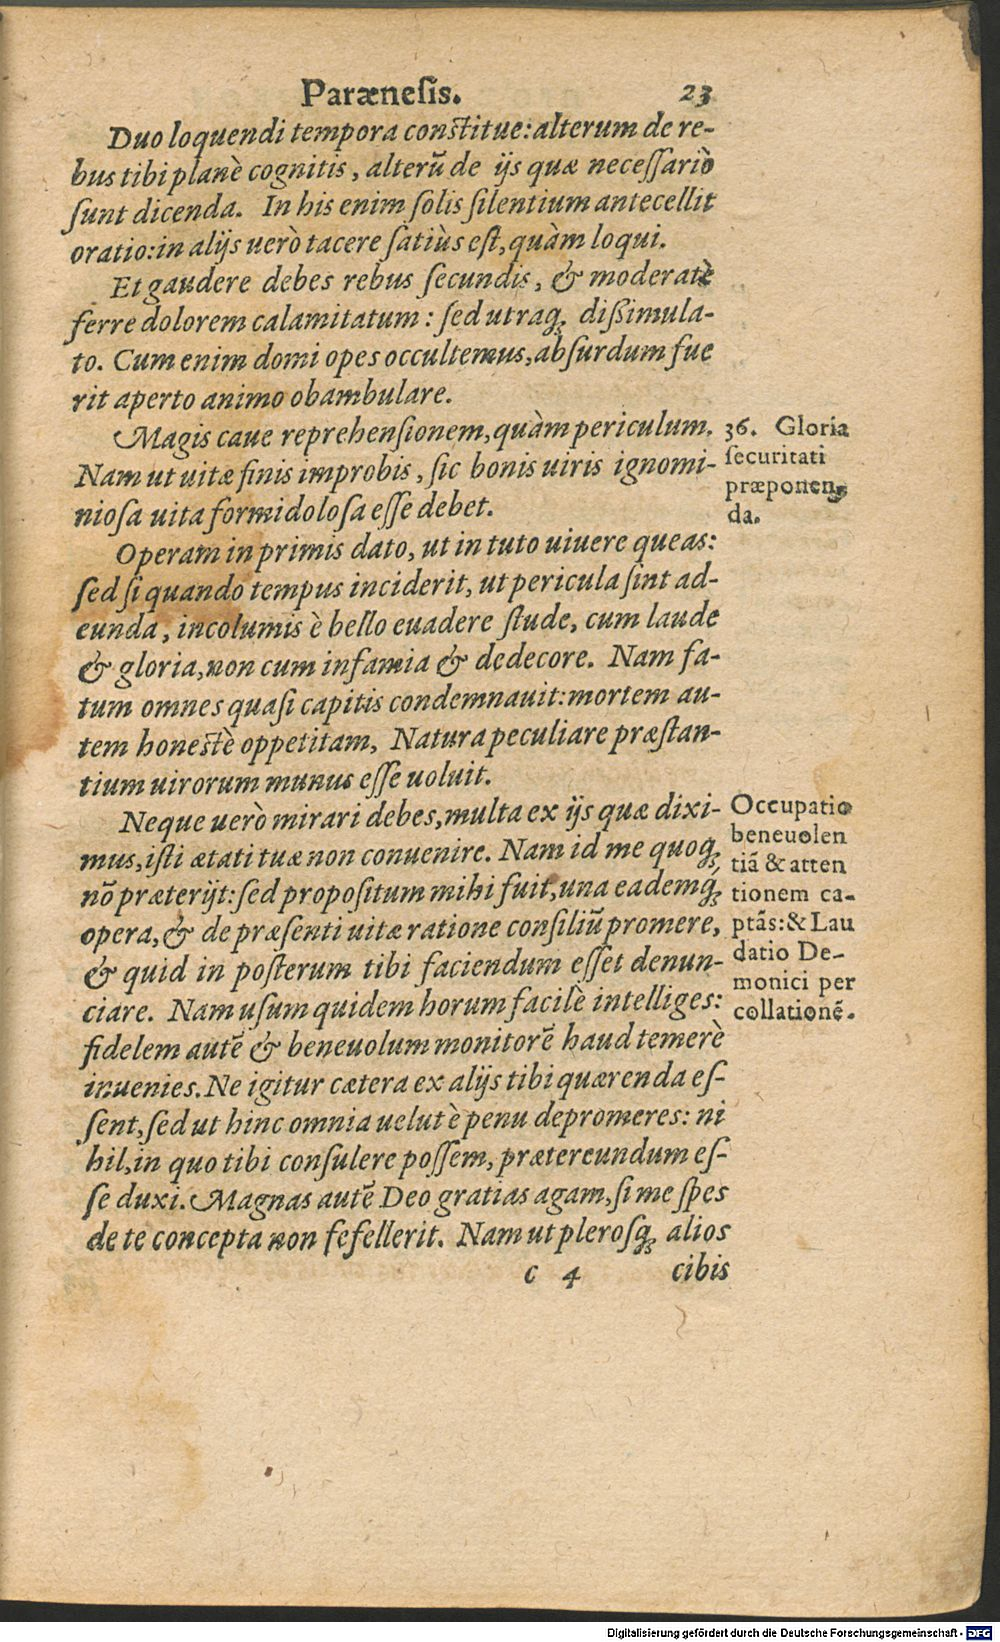 Parænesis. 23
Duo loquendi tempora constitue: alterum de re-
bus tibi planè cognitis, alterũ de ijs quæ necessariò
sunt dicenda. In his enim solis silentium antecellit
oratio: in alijs uerò tacere satiùs est, quàm loqui.
Et gaudere debes rebus secundis, & moderatè
ferre dolorem calamitatum: sed utraq; dissimula-
to. Cum enim domi opes occultemus, absurdum fue
rit aperto animo obambulare.
Magis caue reprehensionem, quàm periculum.
Nam ut uitæ finis improbis, sic bonis uiris ignomi-
niosa uita formidolosa esse debet.
36. Gloria
securitati
præponen-
da.
Operam in primis dato, ut in tuto uiuere queas:
sed si quando tempus inciderit, ut pericula sint ad-
eunda, incolumis è bello euadere stude, cum laude
& gloria, non cum infamia & dedecore. Nam fa-
tum omnes quasi capitis condemnauit: mortem au-
tem honestè oppetitam, Natura peculiare præstan-
tium uirorum munus esse uoluit.
Neque uerò mirari debes, multa ex ijs quæ dixi-
mus, isti ætati tuæ non conuenire. Nam id me quoq;
nõ præterijt: sed propositum mihi fuit, una eademq́;
opera, & de præsenti uitæ ratione consiliũ promere,
& quid in posterum tibi faciendum esset denun-
ciare. Nam usum quidem horum facilè intelliges:
fidelem autẽ & beneuolum monitorẽ haud temerè
inuenies. Ne igitur cætera ex alijs tibi quærenda es-
sent, sed ut hinc omnia uelut è penu depromeres: ni
hil, in quo tibi consulere possem, prætereundum es-
se duxi. Magnas autẽ Deo gratias agam, si me spes
de te concepta non fefellerit. Nam ut plerosq; alios
Occupatio
beneuolen
tiã & atten
tionem ca-
ptãs: & Lau
datio De-
monici per
collationẽ.
c 4 cibis
Digitalisierung gefördert durch die Deutsche Forschungsgemeinschaft - DFG